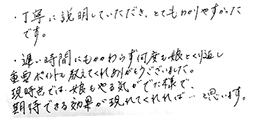 ・丁寧に説明していただき、とてもわかりやすかった
です。
・遅い時間にもかかわらず何度も娘とくり返し
重要ポイントも教えてくれありがとうございました。
現時点では、娘もやる気がでた様で、
期待できる効果が現れてくれれば…と思います。